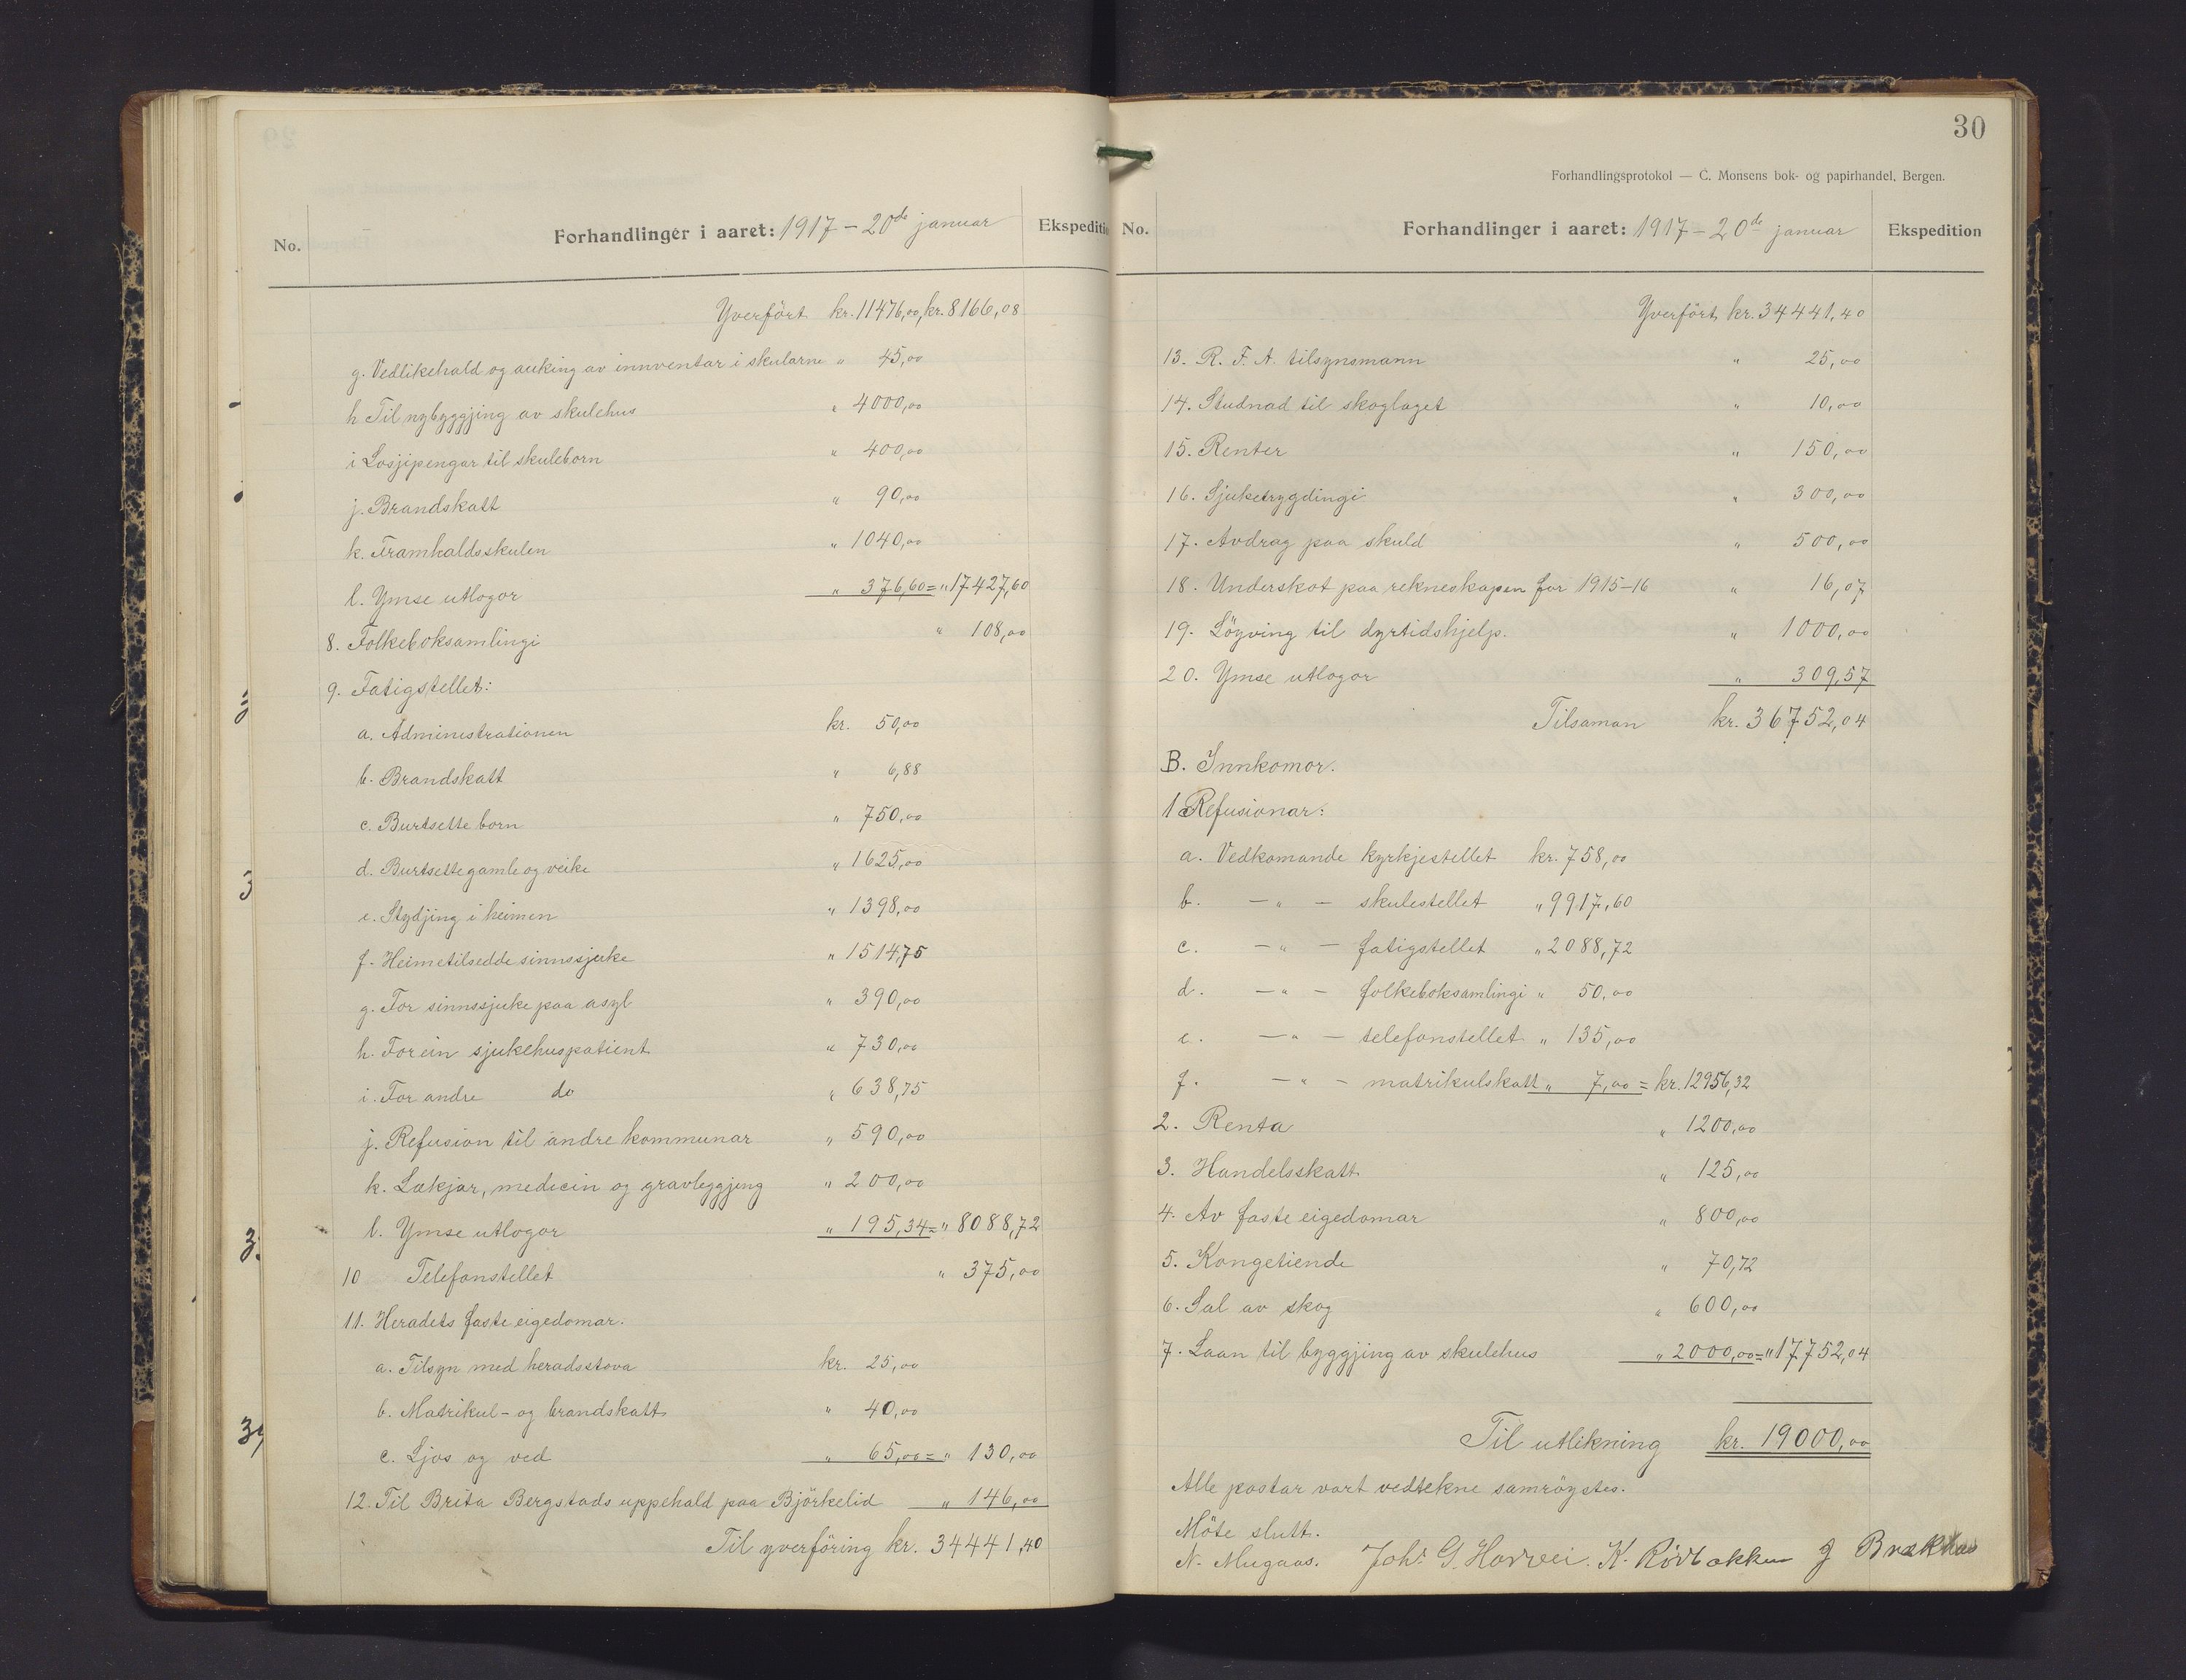 No. Forhandlinger i aaret: 1917 – 20de januar Ekspeditio
Yverført kr. 11476,00, kr. 8166,08
g. Vedlikehald og auking av innventar i skularne " 45,00
h Til nybyggjing av skulehus " 4000,00
i Losjipengar til skuleborn " 400,00
j. Brandskatt " 90,00
k. Framhaldsskulen " 1040,00
l. Ymse utlogor " 376,60 = " 17427,60
8. Folkeboksamlingi " 108,00
9. Fatigstellet:
a. Administrationen kr. 50,00
b. Brandskatt " 6,88
c. Burtsette born " 750,00
d. Burtsette gamle og veike " 1625,00
e. Stydjing i heimen " 1398,00
f. Heimetilsedde sinnssjuke " 1514,75
g. For sinnssjuke paa asyl " 390,00
h. For ein sjukehuspatient " 730,00
i. For andre do " 638,75
j. Refusion til andre kommunar " 590,00
k. Lækjar, medicin og gravleggjing " 200,00
l. Ymse utlogor " 195,34 = " 8088,72
10 Telefonstellet " 375,00
11. Heradets faste eigedomar.
a. Tilsyn med heradsstova kr. 25,00
b. Matrikul- og brandskatt " 40,00
c. Ljos og ved " 65,00 = " 130,00
12. Til Brita Bergstads uppehald paa Björkelid " 146,00
Til yverföring kr. 34441,40
30
Forhandlingsprotokol — C. Monsens bok- og papirhandel, Bergen.
No. Forhandlinger i aaret: 1917 – 20de januar Ekspedition
Yverført kr. 34441,40
13. R. F. A. tilsynsmann " 25,00
14. Studnad til skoglaget " 10,00
15. Renter " 150,00
16. Sjuketrygdingi " 300,00
17. Avdrag paa skuld " 500,00
18. Underskot paa rekneskapen for 1915–16 " 16,07
19. Löyving til dyrtidshjelp. " 1000,00
20. Ymse utlogor " 309,57
Tilsaman kr. 36752,04
B. Innkomor.
1 Refusionar:
a. Vedkomande kyrkjestellet kr. 758,00
b. – " – skulestellet " 9917,60
c. – " – fatigstellet " 2088,72
d. – " – folkeboksamlingi " 50,00
e. – " – telefonstellet " 135,00
f. – " – matrikulskatt " 7,00 = kr. 12956,32
2. Renta " 1200,00
3. Handelsskatt " 125,00
4. Av faste eigedomar " 800,00
5. Kongetiende " 70,72
6. Sal av skog " 600,00
7. Laan til byggjing av skulehus " 2000,00 = " 17752,04
Til utlikning kr. 19000,00
Alle postar vart vedtekne samröystes.
Möte slutt.
N. Mugaas. Johs G. Horvei. K. Rödbakken J Brækhus